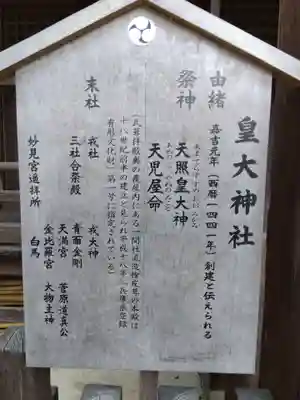 皇大神社
由緒
嘉吉元年（西暦一四四一年）創建と伝えられる
祭神
天照皇大神
天児屋命
（瓦葺拝殿奥の覆屋内にある一間社流造桧皮葺の本殿は
十八世紀前半の建立と見られ平成十八年、兵庫県登録
有形文化財、第一号に指定されている）
末社
戎社 戎大神
三社合祭殿 青面金剛
天満宮 菅原道真公
金比羅宮 大物主神
妙見宮遥拝所 白馬